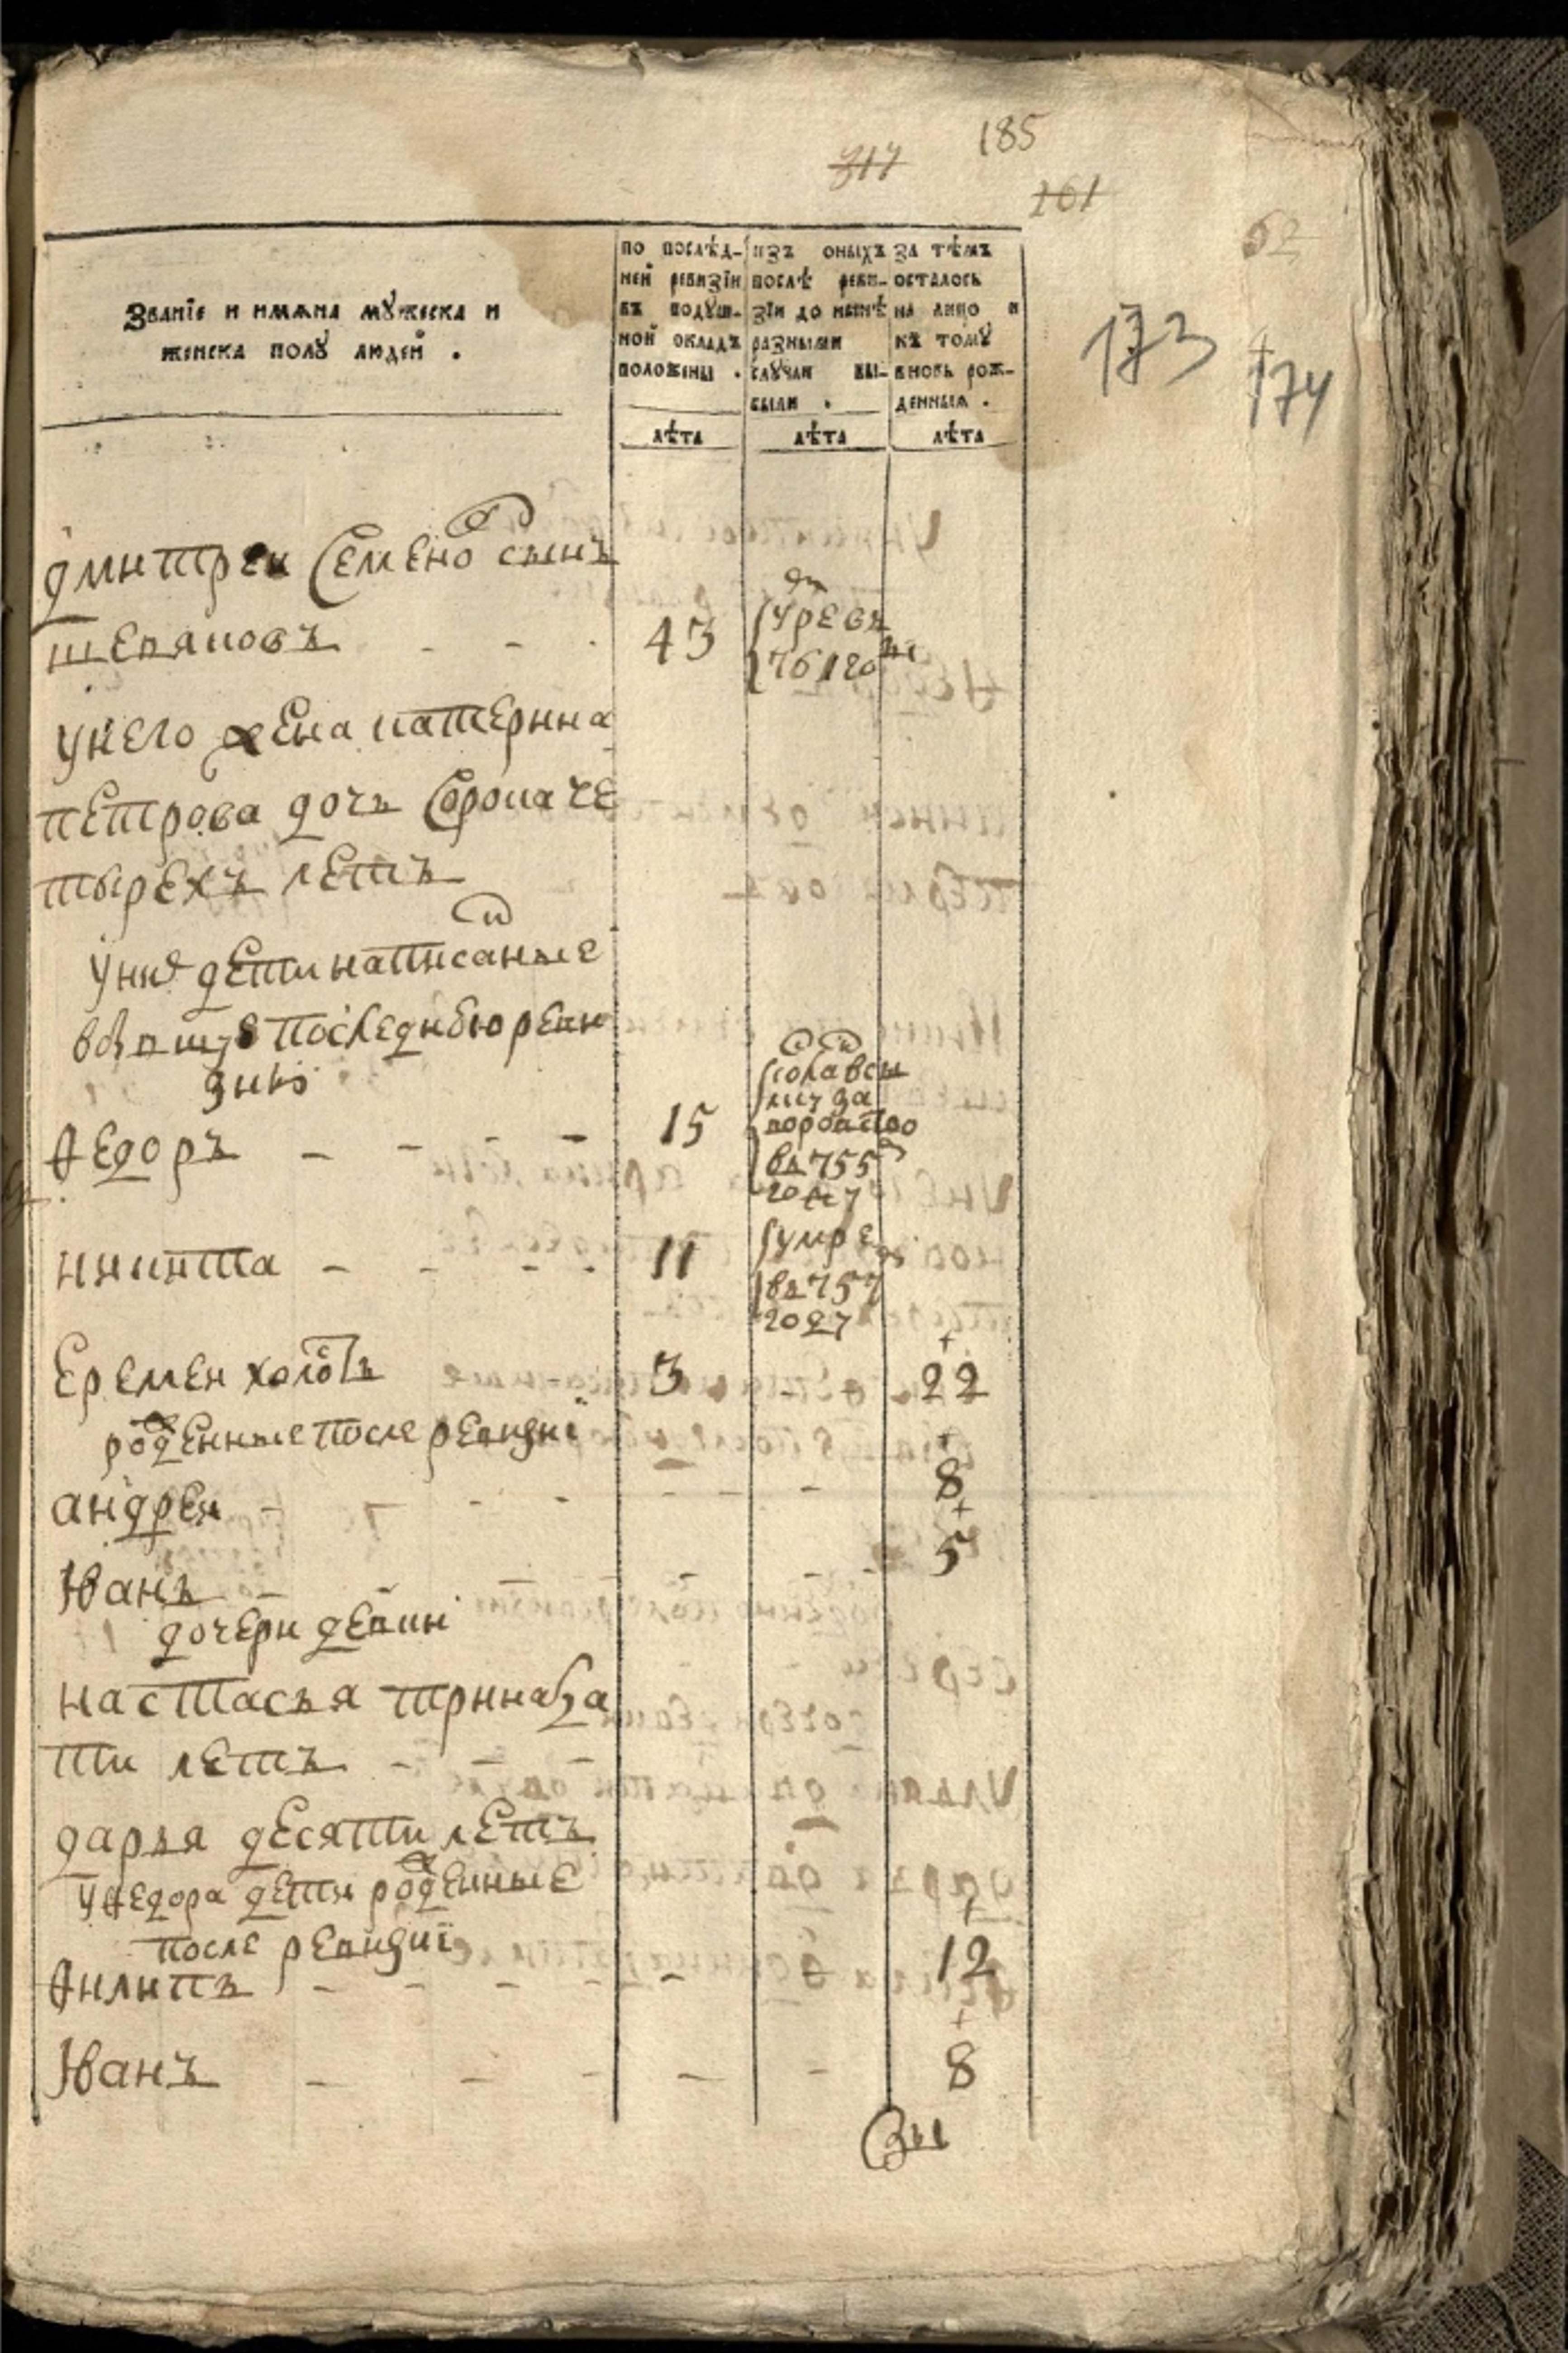 185
317
161
62
173
174
Званїе и имѧна мꙋжеска и
женска полꙋ людей .
по послѣд-
ней ревизїи
въ подꙋш-
ной окладъ
положены .
лѣта
изъ оныхъ
послѣ реви-
зїи до нынѣ
разными
слꙋчаи вы-
были .
лѣта
за тѣмъ
осталось
на лицо и
къ томꙋ
вновь рож-
денныѧ .
лѣта
дмитреи Семено сынъ
щепановъ 43
у него жена катерина
петрова дочь Сорока че
тырехъ летъ
у них дети написаные
последнюю реви
зию
Ѳедоръ 15
въ 755
году
никита 11 умре
въ 757
году
Еремеи холостъ 3 22
рожденные после ревизиї
андреи 8
Иванъ 5
дочери девки
настасья тринатца
ти летъ
дарья десяти летъ
у Ѳедора дети рожденные
после ревизиї
Ѳилипъ 12
Иванъ 8